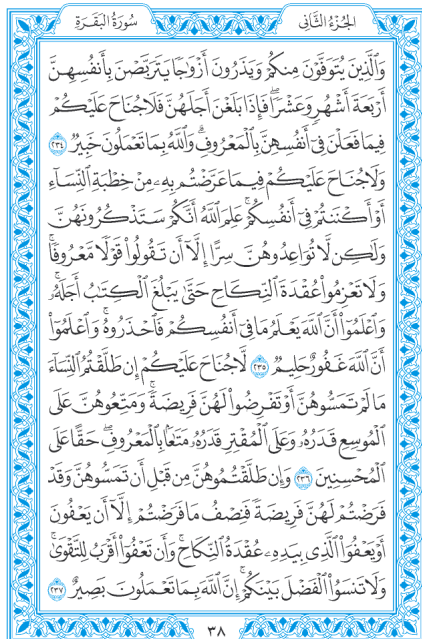 الجُزءُ الثَّانِي
سُورَةُ البَقَرَةِ
وَٱلَّذِينَ يُتَوَفَّوۡنَ مِنكُمۡ وَيَذَرُونَ أَزۡوَٰجٗا يَتَرَبَّصۡنَ بِأَنفُسِهِنَّ
أَرۡبَعَةَ أَشۡهُرٖ وَعَشۡرٗاۖ فَإِذَا بَلَغۡنَ أَجَلَهُنَّ فَلَا جُنَاحَ عَلَيۡكُمۡ
فِيمَا فَعَلۡنَ فِيٓ أَنفُسِهِنَّ بِٱلۡمَعۡرُوفِۗ وَٱللَّهُ بِمَا تَعۡمَلُونَ خَبِيرٞ ٢٣٤
وَلَا جُنَاحَ عَلَيۡكُمۡ فِيمَا عَرَّضۡتُم بِهِۦ مِنۡ خِطۡبَةِ ٱلنِّسَآءِ
أَوۡ أَكۡنَنتُمۡ فِيٓ أَنفُسِكُمۡۚ عَلِمَ ٱللَّهُ أَنَّكُمۡ سَتَذۡكُرُونَهُنَّ
وَلَٰكِن لَّا تُوَاعِدُوهُنَّ سِرًّا إِلَّآ أَن تَقُولُواْ قَوۡلٗا مَّعۡرُوفٗاۚ
وَلَا تَعۡزِمُواْ عُقۡدَةَ ٱلنِّكَاحِ حَتَّىٰ يَبۡلُغَ ٱلۡكِتَٰبُ أَجَلَهُۥۚ
وَٱعۡلَمُوٓاْ أَنَّ ٱللَّهَ يَعۡلَمُ مَا فِيٓ أَنفُسِكُمۡ فَٱحۡذَرُوهُۚ وَٱعۡلَمُوٓاْ
أَنَّ ٱللَّهَ غَفُورٌ حَلِيمٞ ٢٣٥ لَّا جُنَاحَ عَلَيۡكُمۡ إِن طَلَّقۡتُمُ ٱلنِّسَآءَ
مَا لَمۡ تَمَسُّوهُنَّ أَوۡ تَفۡرِضُواْ لَهُنَّ فَرِيضَةٗۚ وَمَتِّعُوهُنَّ عَلَى
ٱلۡمُوسِعِ قَدَرُهُۥ وَعَلَى ٱلۡمُقۡتِرِ قَدَرُهُۥ مَتَٰعَۢا بِٱلۡمَعۡرُوفِۖ حَقًّا عَلَى
ٱلۡمُحۡسِنِينَ ٢٣٦ وَإِن طَلَّقۡتُمُوهُنَّ مِن قَبۡلِ أَن تَمَسُّوهُنَّ وَقَدۡ
فَرَضۡتُمۡ لَهُنَّ فَرِيضَةٗ فَنِصۡفُ مَا فَرَضۡتُمۡ إِلَّآ أَن يَعۡفُونَ
أَوۡ يَعۡفُوَاْ ٱلَّذِي بِيَدِهِۦ عُقۡدَةُ ٱلنِّكَاحِۚ وَأَن تَعۡفُوٓاْ أَقۡرَبُ لِلتَّقۡوَىٰۚ
وَلَا تَنسَوُاْ ٱلۡفَضۡلَ بَيۡنَكُمۡۚ إِنَّ ٱللَّهَ بِمَا تَعۡمَلُونَ بَصِيرٌ ٢٣٧
٣٨